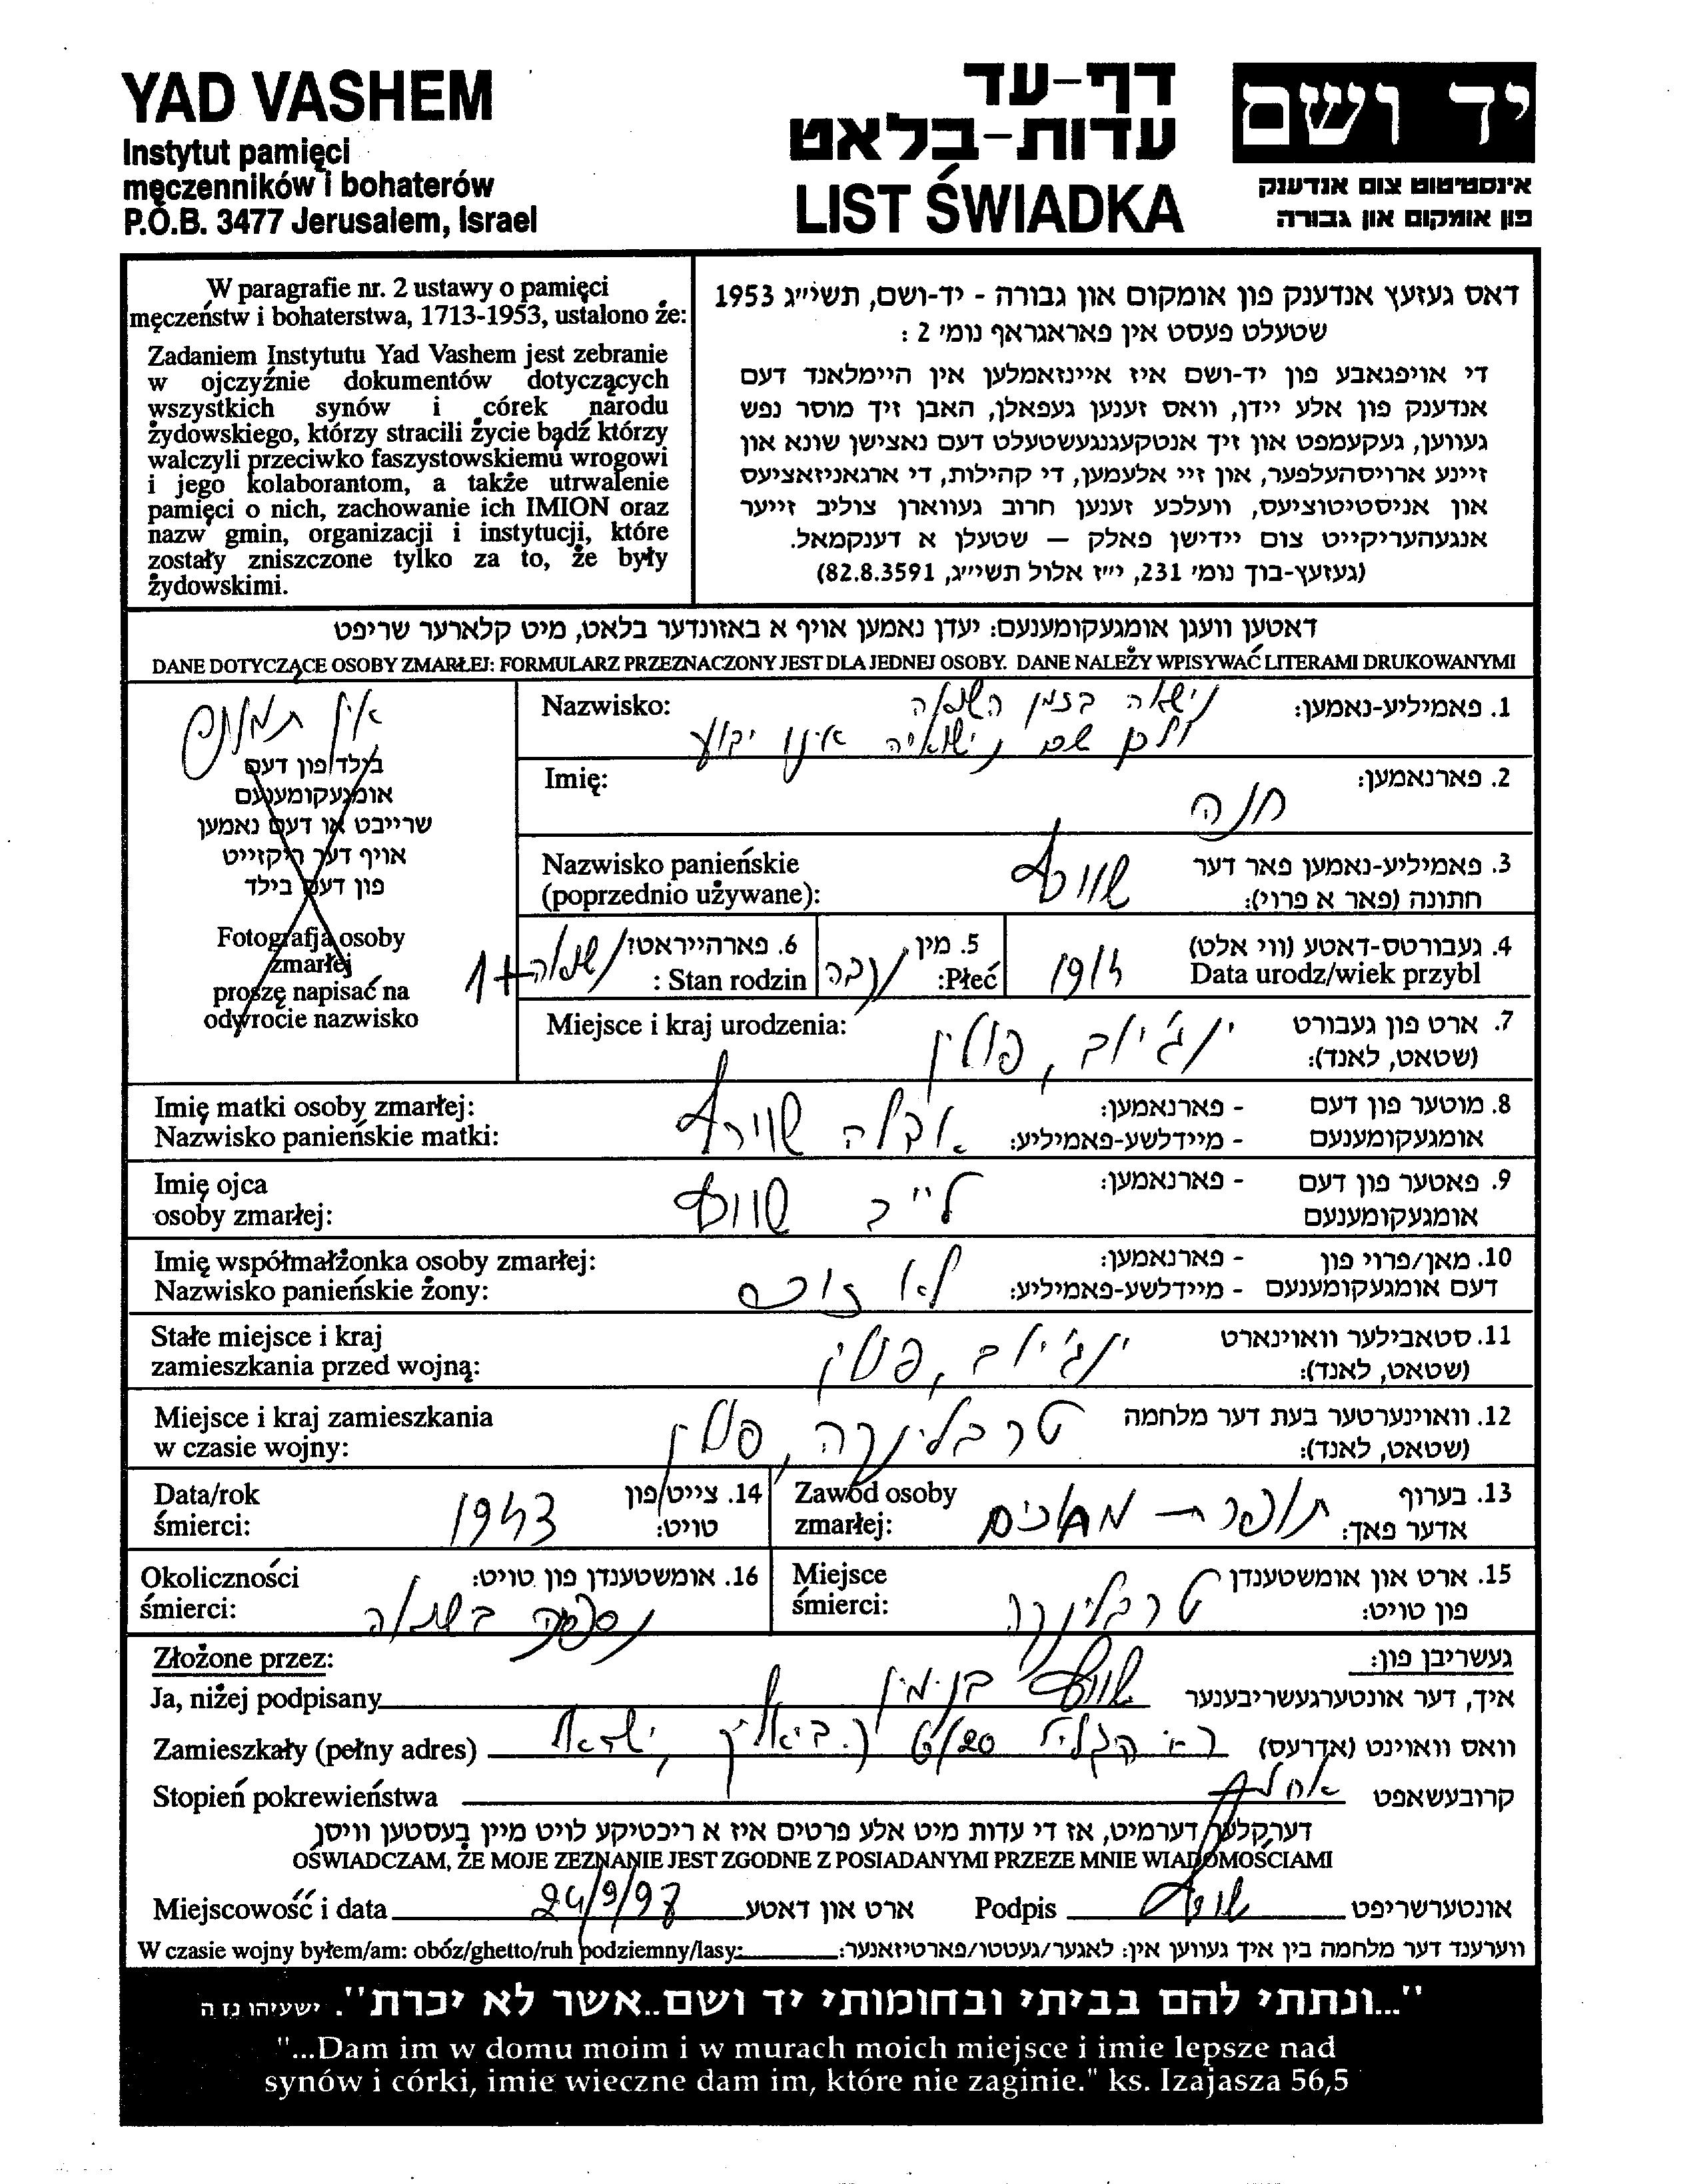 YAD VASHEM
Instytut pamięci
męczenników i bohaterów
P.O.B. 3477 Jerusalem, Israel
דף-עד
עדות-בלאט
LIST ŚWIADKA
יד ושם
אינסטיטוט צום אנדענק
פון אומקום און גבורה
W paragrafie nr. 2 ustawy o pamięci
męczeństw i bohaterstwa, 1713-1953, ustalono że:
Zadaniem Instytutu Yad Vashem jest zebranie
w ojczyźnie dokumentów dotyczących
wszystkich synów i córek narodu
żydowskiego, którzy stracili życie bądź którzy
walczyli przeciwko faszystowskiemu wrogowi
i jego kolaborantom, a także utrwalenie
pamięci o nich, zachowanie ich IMION oraz
nazw gmin, organizacji i instytucji, które
zostały zniszczone tylko za to, że były
żydowskimi.
דאס געזעץ אנדענק פון אומקום און גבורה - יד-ושם, תשי״ג 1953
שטעלט פעסט אין פאראגראף נומ׳ 2 :
די אויפגאבע פון יד-ושם איז איינזאמלען אין היימלאנד דעם
אנדענק פון אלע יידן, וואס זענען געפאלן, האבן זיך מוסר נפש
געווען, געקעמפט און זיך אנטקעגנגעשטעלט דעם נאצישן שונא און
זיינע ארויסהעלפער, און זיי אלעמען, די קהילות, די ארגאניזאציעס
און אניסטיטוציעס, וועלכע זענען חרוב געווארן צוליב זייער
אנגעהעריקייט צום יידישן פאלק – שטעלן א דענקמאל.
(געזעץ-בוך נומ׳ 231, י״ז אלול תשי״ג, 82.8.3591)
דאטען וועגן אומגעקומענעם: יעדן נאמען אויף א באזונדער בלאט, מיט קלארער שריפט
DANE DOTYCZĄCE OSOBY ZMARŁEJ: FORMULARZ PRZEZNACZONY JEST DLA JEDNEJ OSOBY. DANE NALEŻY WPISYWAĆ LITERAMI DRUKOWANYMI
אין תמונה
בילד פון דעם
אומגעקומענעם
שרייבט או דעם נאמען
אויף דער ריקזייט
פון דעם בילד
Fotografja osoby
zmarłej
proszę napisać na
odwrocie nazwisko
1. פאמיליע-נאמען: נישאה בזמן השואה Nazwisko:
ולכן שם נישואיה אינו ידוע
2. פארנאמען: חנה Imię:
3. פאמיליע-נאמען פאר דער
חתונה (פאר א פרוי): שווץ
Nazwisko panieńskie
(poprzednio używane):
4. געבורטס-דאטע (ווי אלט)
Data urodz/wiek przybl 1915
5. מין
Płeć: נקבה
6. פארהייראט?
Stan rodzin : נשואה +1
7. ארט פון געבורט
(שטאט, לאנד): ינג׳יוב, פולין
Miejsce i kraj urodzenia:
8. מוטער פון דעם - פארנאמען:
אומגעקומענעם - מיידלשע-פאמיליע:
Imię matki osoby zmarłej:
Nazwisko panieńskie matki:
9. פאטער פון דעם - פארנאמען:
אומגעקומענעם
לייב שווץ
Imię ojca
osoby zmarłej:
10. מאן/פרוי פון - פארנאמען:
דעם אומגעקומענעם - מיידלשע-פאמיליע:
לא זוכר
Imię współmałżonka osoby zmarłej:
Nazwisko panieńskie żony:
11. סטאבילער וואוינארט
(שטאט, לאנד): ינג׳יוב, פולין
Stałe miejsce i kraj
zamieszkania przed wojną:
12. וואוינערטער בעת דער מלחמה
(שטאט, לאנד): טרבלינקה, פולין
Miejsce i kraj zamieszkania
w czasie wojny:
13. בערוף
אדער פאך: תופרת - מחוכים
Zawód osoby
zmarłej:
14. צייט פון
טויט: 1943
Data/rok
śmierci:
15. ארט און אומשטענדן
פון טויט: טרבלינקה
Miejsce
śmierci:
16. אומשטענדן פון טויט:
נספתה בשואה
Okoliczności
śmierci:
געשריבן פון:
Złożone przez:
איך, דער אונטערגעשריבענער שווץ בנימין
Ja, niżej podpisany
וואס וואוינט (אדרעס) 6/20 ק. ביאליק, ישראל
Zamieszkały (pełny adres)
קרובעשאפט אחות
Stopień pokrewieństwa
דערקלער דערמיט, אז די עדות מיט אלע פרטים איז א ריכטיקע לויט מיין בעסטען וויסן
OŚWIADCZAM, ŻE MOJE ZEZNANIE JEST ZGODNE Z POSIADANYMI PRZEZE MNIE WIADOMOŚCIAMI
Miejscowość i data 24/9/97 ארט און דאטע Podpis שווץ אונטערשריפט
W czasie wojny byłem/am: obóz/ghetto/ruh podziemny/lasy: ווערענד דער מלחמה בין איך געווען אין: לאגער/געטטו/פארטיזאנער:
"...ונתתי להם בביתי ובחומותי יד ושם..אשר לא יכרת". ישעיהו נו ה
"...Dam im w domu moim i w murach moich miejsce i imie lepsze nad
synów i córki, imie wieczne dam im, które nie zaginie." ks. Izajasza 56,5